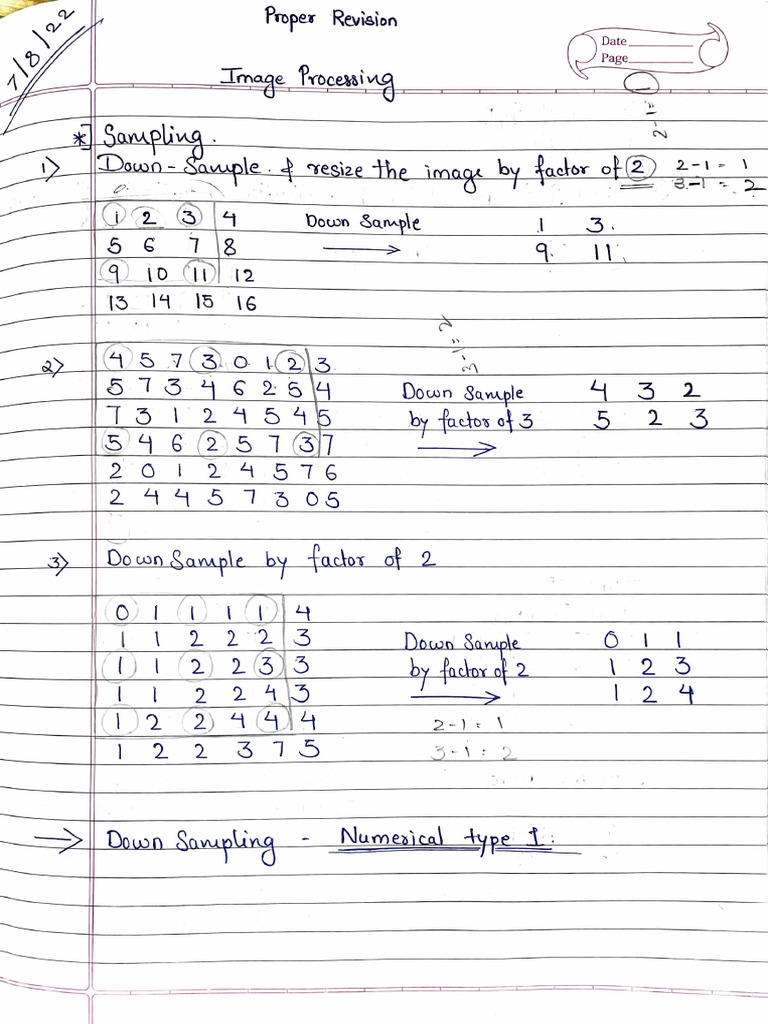 7/8/22
Proper Revision
Date
Page
1
2-1=
Image Processing
*] Sampling.
1) Down-Sample & resize the image by factor of 2 2-1=1
3-1=2
1 2 3 4 Down Sample 1 3
5 6 7 8 → 9 11
9 10 11 12
13 14 15 16
2) 4 5 7 3 0 1 2 3
3-1=2
5 7 3 4 6 2 5 4 Down Sample 4 3 2
7 3 1 2 4 5 4 5 by factor of 3 5 2 3
5 4 6 2 5 7 3 7 →
2 0 1 2 4 5 7 6
2 4 4 5 7 3 0 5
3) Down Sample by factor of 2
0 1 1 1 1 4
1 1 2 2 2 3 Down Sample 0 1 1
1 1 2 2 3 3 by factor of 2 1 2 3
1 1 2 2 4 3 → 1 2 4
1 2 2 4 4 4 2-1=1
1 2 2 3 7 5 3-1=2
→ Down Sampling - Numerical type I: